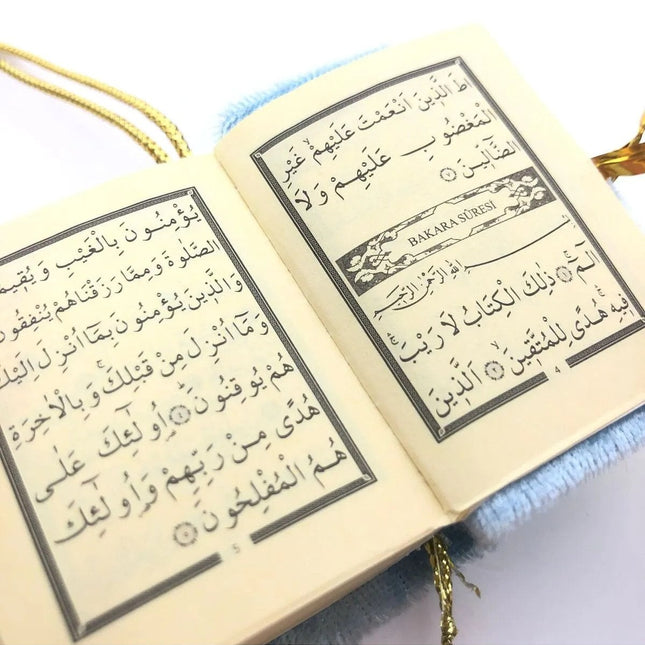 طَ الَّذِينَ اَنْعَمْتَ عَلَيْهِمْ غَيْرِ
الْمَغْضُوبِ عَلَيْهِمْ وَلَا
الضَّٓالِّينَ ﴿٧﴾
BAKARA SÛRESİ
بِسْمِ اللّٰهِ الرَّحْمٰنِ الرَّحِيمِ
الٓمٓ ﴿١﴾ ذٰلِكَ الْكِتَابُ لَا رَيْبَۚ
فِيهِۚ هُدًى لِلْمُتَّقِينَۙ ﴿٢﴾ اَلَّذِينَ
4
يُؤْمِنُونَ بِالْغَيْبِ وَيُقِيمُ
الصَّلٰوةَ وَمِمَّا رَزَقْنَاهُمْ يُنْفِقُونَ
وَالَّذِينَ يُؤْمِنُونَ بِمَٓا اُنْزِلَ اِلَيْكَ
وَمَٓا اُنْزِلَ مِنْ قَبْلِكَۚ وَبِالْاٰخِرَةِ
هُمْ يُوقِنُونَۜ ﴿٤﴾ اُو۬لٰٓئِكَ عَلٰى
هُدًى مِنْ رَبِّهِمْ وَاُو۬لٰٓئِكَ
هُمُ الْمُفْلِحُونَ ﴿٥﴾
5